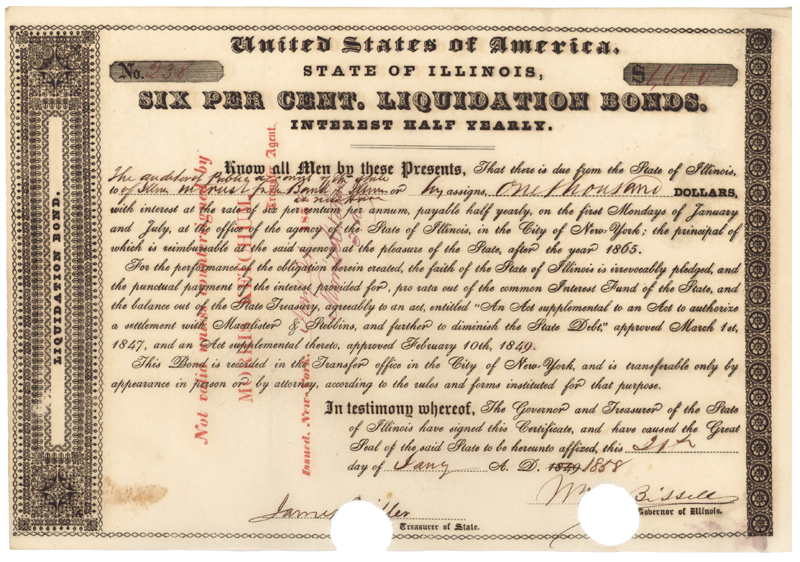 United States of America.
No. 238
STATE OF ILLINOIS,
$ 1,000
SIX PER CENT. LIQUIDATION BONDS.
INTEREST HALF YEARLY.
LIQUIDATION BOND.
Know all Men by these Presents, That there is due from the State of Illinois,
The auditor of Public of the State
to of in trust for Bank or assigns, One thousand DOLLARS,
with interest at the rate of six per centum per annum, payable half yearly, on the first Mondays of January
and July, at the office of the agency of the State of Illinois, in the City of New-York: the principal of
which is reimbursable at the said agency at the pleasure of the State, after the year 1865.
For the performance of the obligation herein created, the faith of the State of Illinois is irrevocably pledged, and
the punctual payment of the interest provided for, pro rata out of the common Interest Fund of the State, and
the balance out of the State Treasury, agreeably to an act, entitled "An Act supplemental to an Act to authorize
a settlement with Macalister & Stebbins, and further to diminish the State Debt," approved March 1st,
1847, and an Act supplemental thereto, approved February 10th, 1849.
This Bond is recorded in the Transfer office in the City of New-York, and is transferable only by
appearance in person or by attorney, according to the rules and forms instituted for that purpose.
In testimony whereof, The Governor and Treasurer of the State
of Illinois have signed this Certificate, and have caused the Great
Seal of the said State to be hereunto affixed, this
day of Jany A. D. 1849 1858
James
Treasurer of State.
Wm Bissell
Governor of Illinois.
Not valid unless countersigned by
Agent.
Issued, New-York,